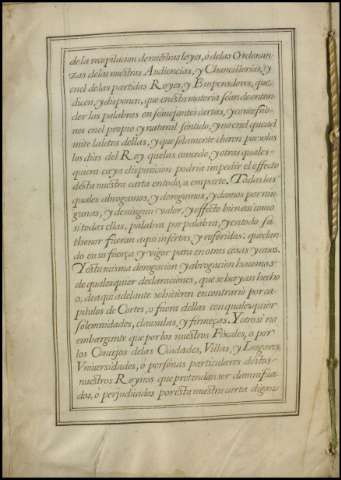 de la recopilacion de nuestras leyes, o de las Ordenan-
zas de las nuestras Audiencias, y Chancillerias, y
en el de las partidas Reyes y Emperadores, que
dicen, y disponen, que en esta materia se an de enten-
der las palabras en semejantes cartas, y
en el proprio y natural sentido, y no en el que ad-
mite la letra dellas, y que solamente
los dias del Rey que las concede, y otras quales-
quiera cuya disposicion podria impedir el effecto
desta nuestra carta en todo, o en parte. Todas las
quales abrogamos, y derogamos, y damos por nin-
gunas, y de ningun valor, y effecto bien assi como
si todas ellas, palabra por palabra, y en todo su
thenor fueran aqui insertas, y referidas: quedan-
do en su fuerza, y vigor para en otras cosas, y casos.
Y esta misma derogacion y abrogacion hazemos
de qualesquier declaraciones, que se hayan hech-
o, de aqui adelante se hizieren en contrario por ca-
pitulos de Cortes, o fuera dellas con qualesquier
solemnidades, clausulas, y firmezas. Y
embargante que por los nuestros Fiscales, o por
los Consejos de las Ciudades, Villas, y Lugares,
Vniuersidades, o personas particulares destos
nuestros Reynos que pretendan ser damnifica-
dos, o perjudicados por esta nuestra carta digan,